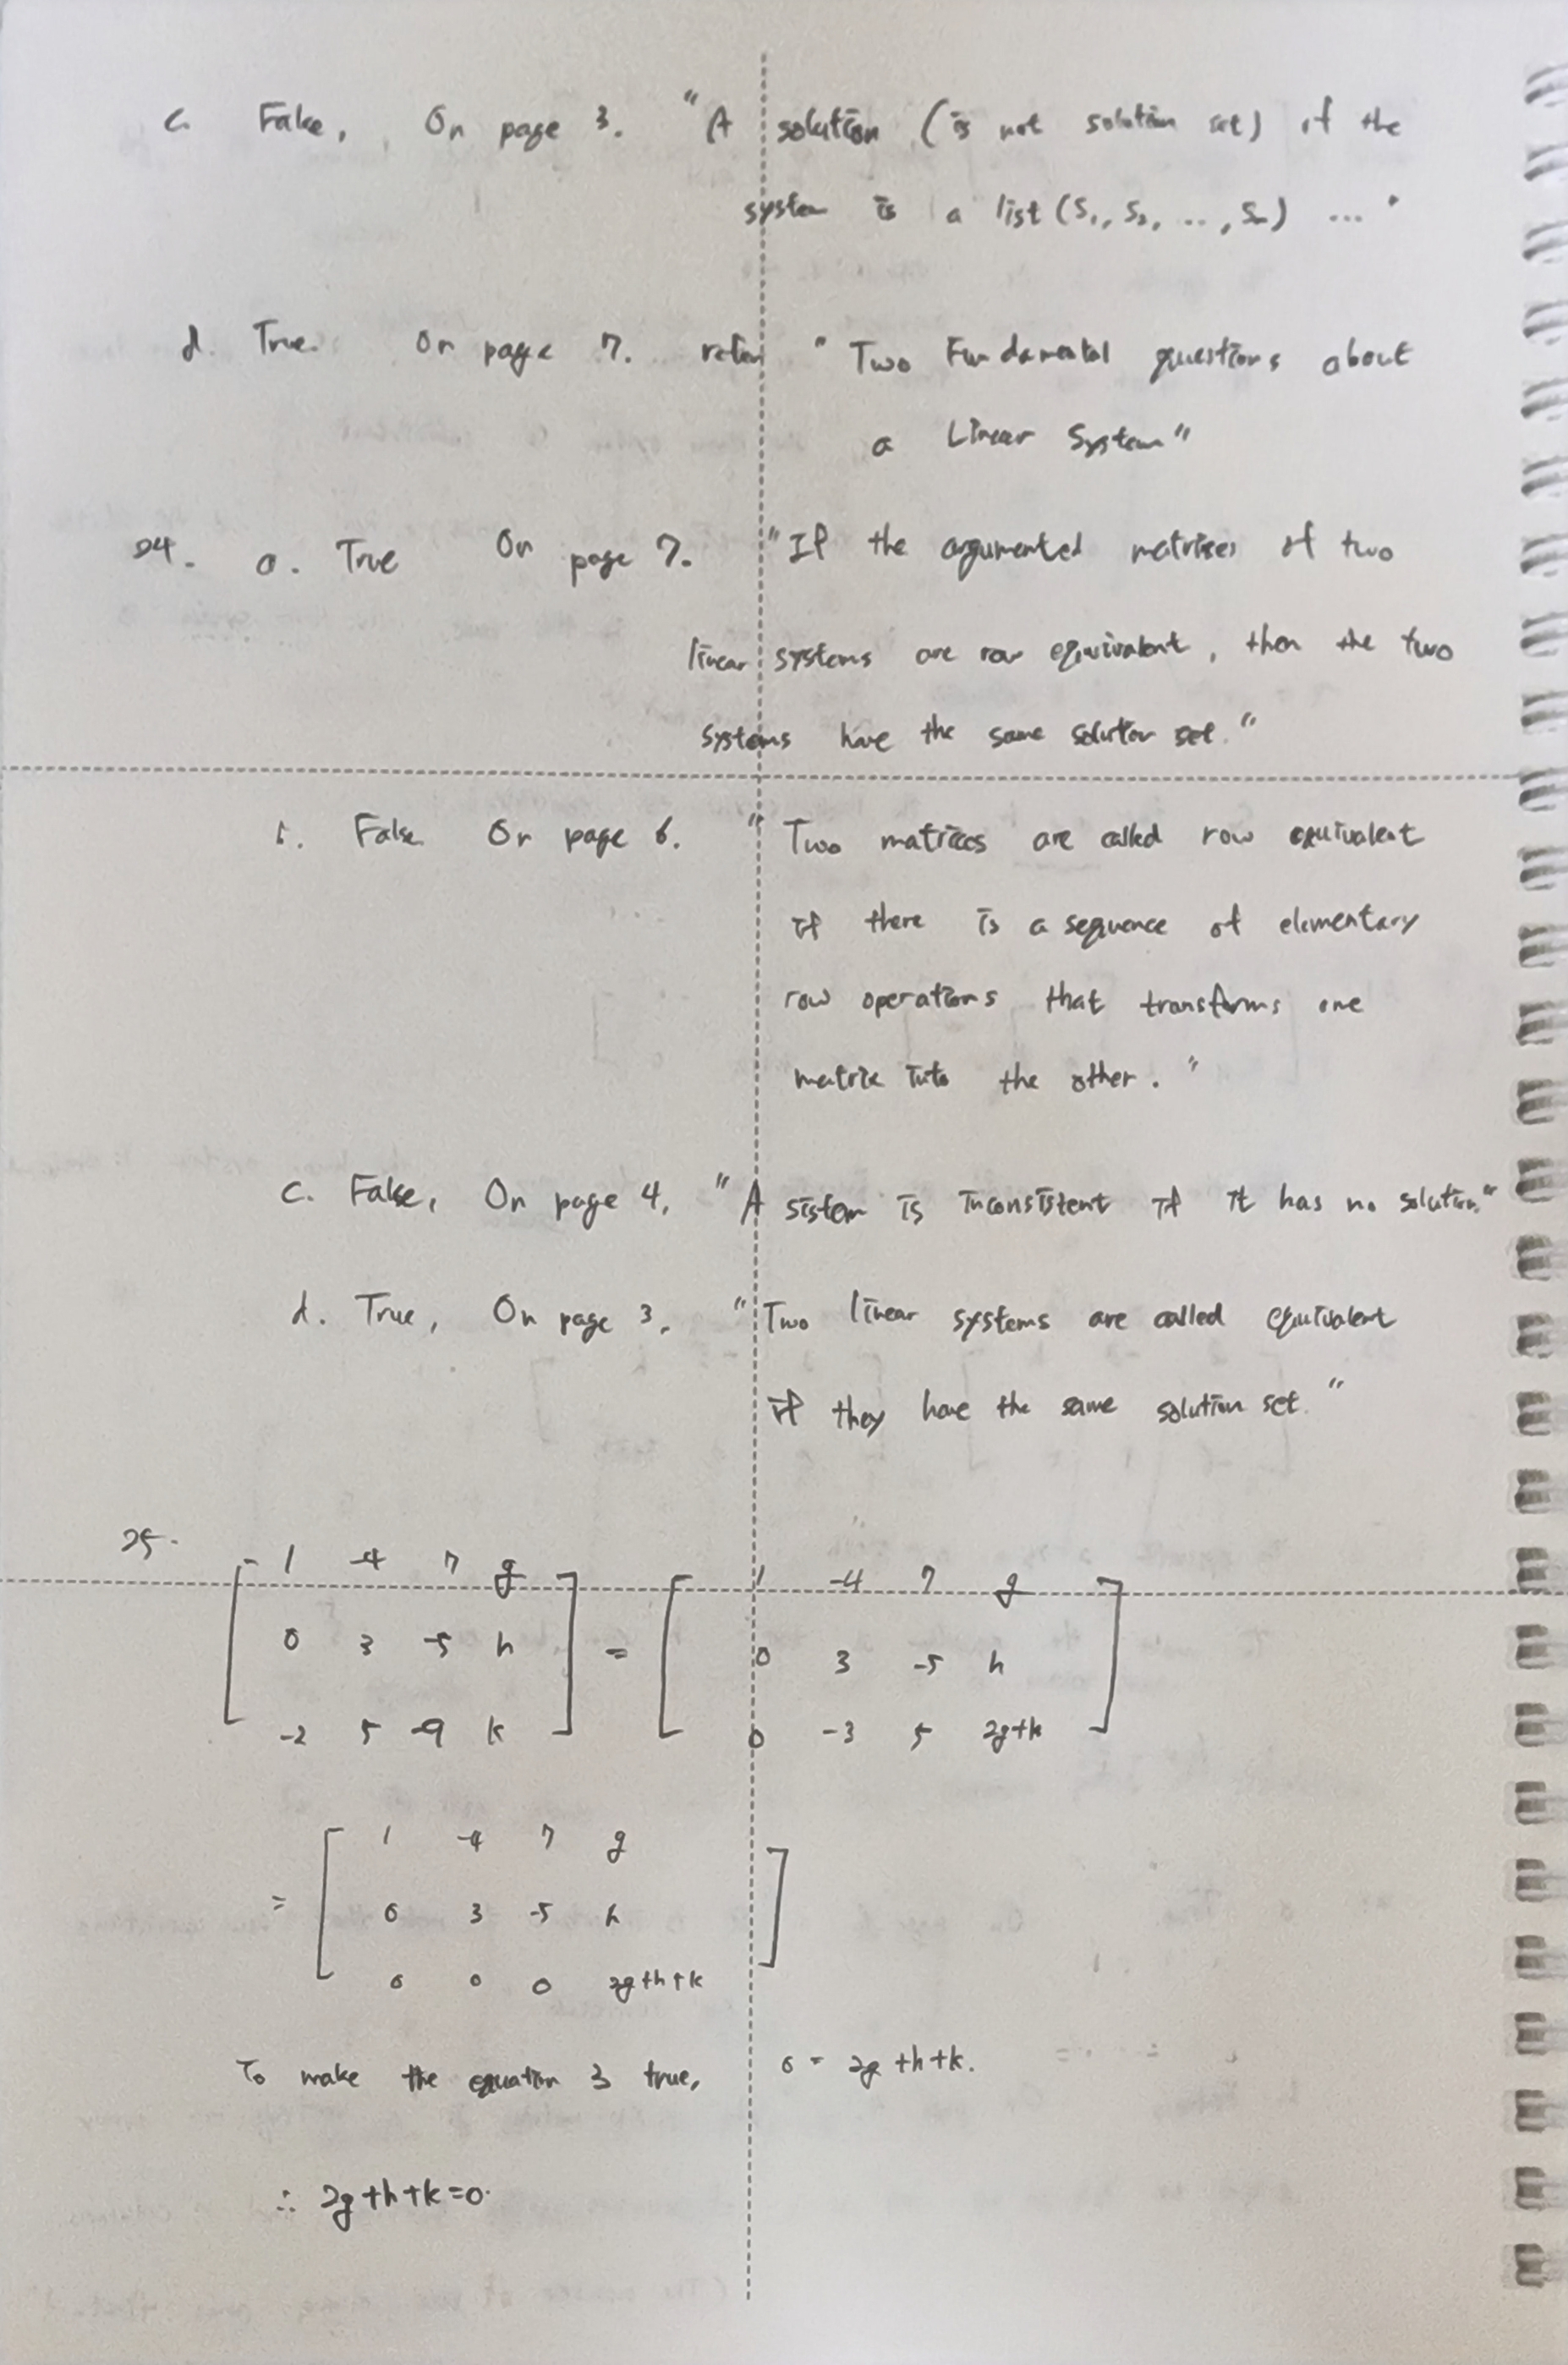 c. False, On page 3. "A solution (is not solution set) of the
system is a list (S₁, S₂, .., Sₙ) ... "
d. True. On page 7. "Two Fundamental questions about
a Linear System"
24. a. True On page 7. "If the argumented matrices of two
linear systems are row equivalent, then the two
systems have the same solution set."
b. False On page 6. "Two matrices are called row equivalent
if there is a sequence of elementary
row operations that transforms one
matrix into the other."
c. False, On page 4, "A sistem is inconsistent if it has no solution."
d. True, On page 3, "Two linear systems are called equivalent
if they have the same solution set."
25.
[ 1 -4 7 g ] [ 1 -4 7 g ]
[ 0 3 -5 h ] = [ 0 3 -5 h ]
[ -2 5 -9 k ] [ 0 -3 5 2g+k ]
[ 1 -4 7 g ]
= [ 0 3 -5 h ]
[ 0 0 0 2g+h+k ]
To make the equation 3 true, 0 = 2g+h+k.
∴ 2g+h+k=0.